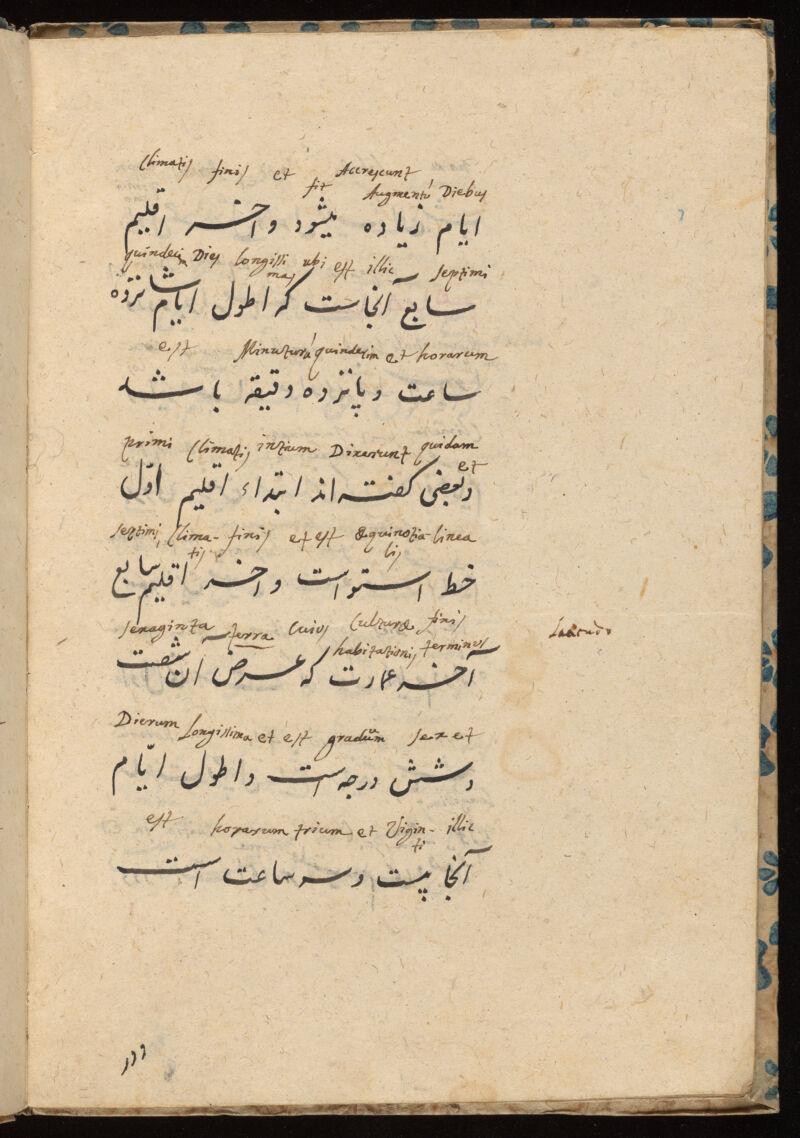 Climatis finis et Accrescunt
fit Augmentũ Diebus
ایام زیاده میشود و آخر اقلیم
quindecim Dies longissimas ubi est illic septimi
سابع آنجاست که اطول ایام شانزده
est Minuturũ quindecim et horarum
ساعت و پانزده دقیقه باشد
primi Climatis initium Dixerunt quidam et
و بعضی گفته اند ابتداء اقلیم اوّل
septimi Climatis finis et est Æquinotialis linea
خط استواست و آخر اقلیم سابع
sexaginta terra Cuius Culturæ finis
habitationis terminus
Latitudo
آخر عمارت که عرض آن شصت
Dierum Longissima et est graduũm sex et
و شش درجه است و اطول ایّام
est horarum trium et Viginti illic
آنجا بیست و سه ساعت است